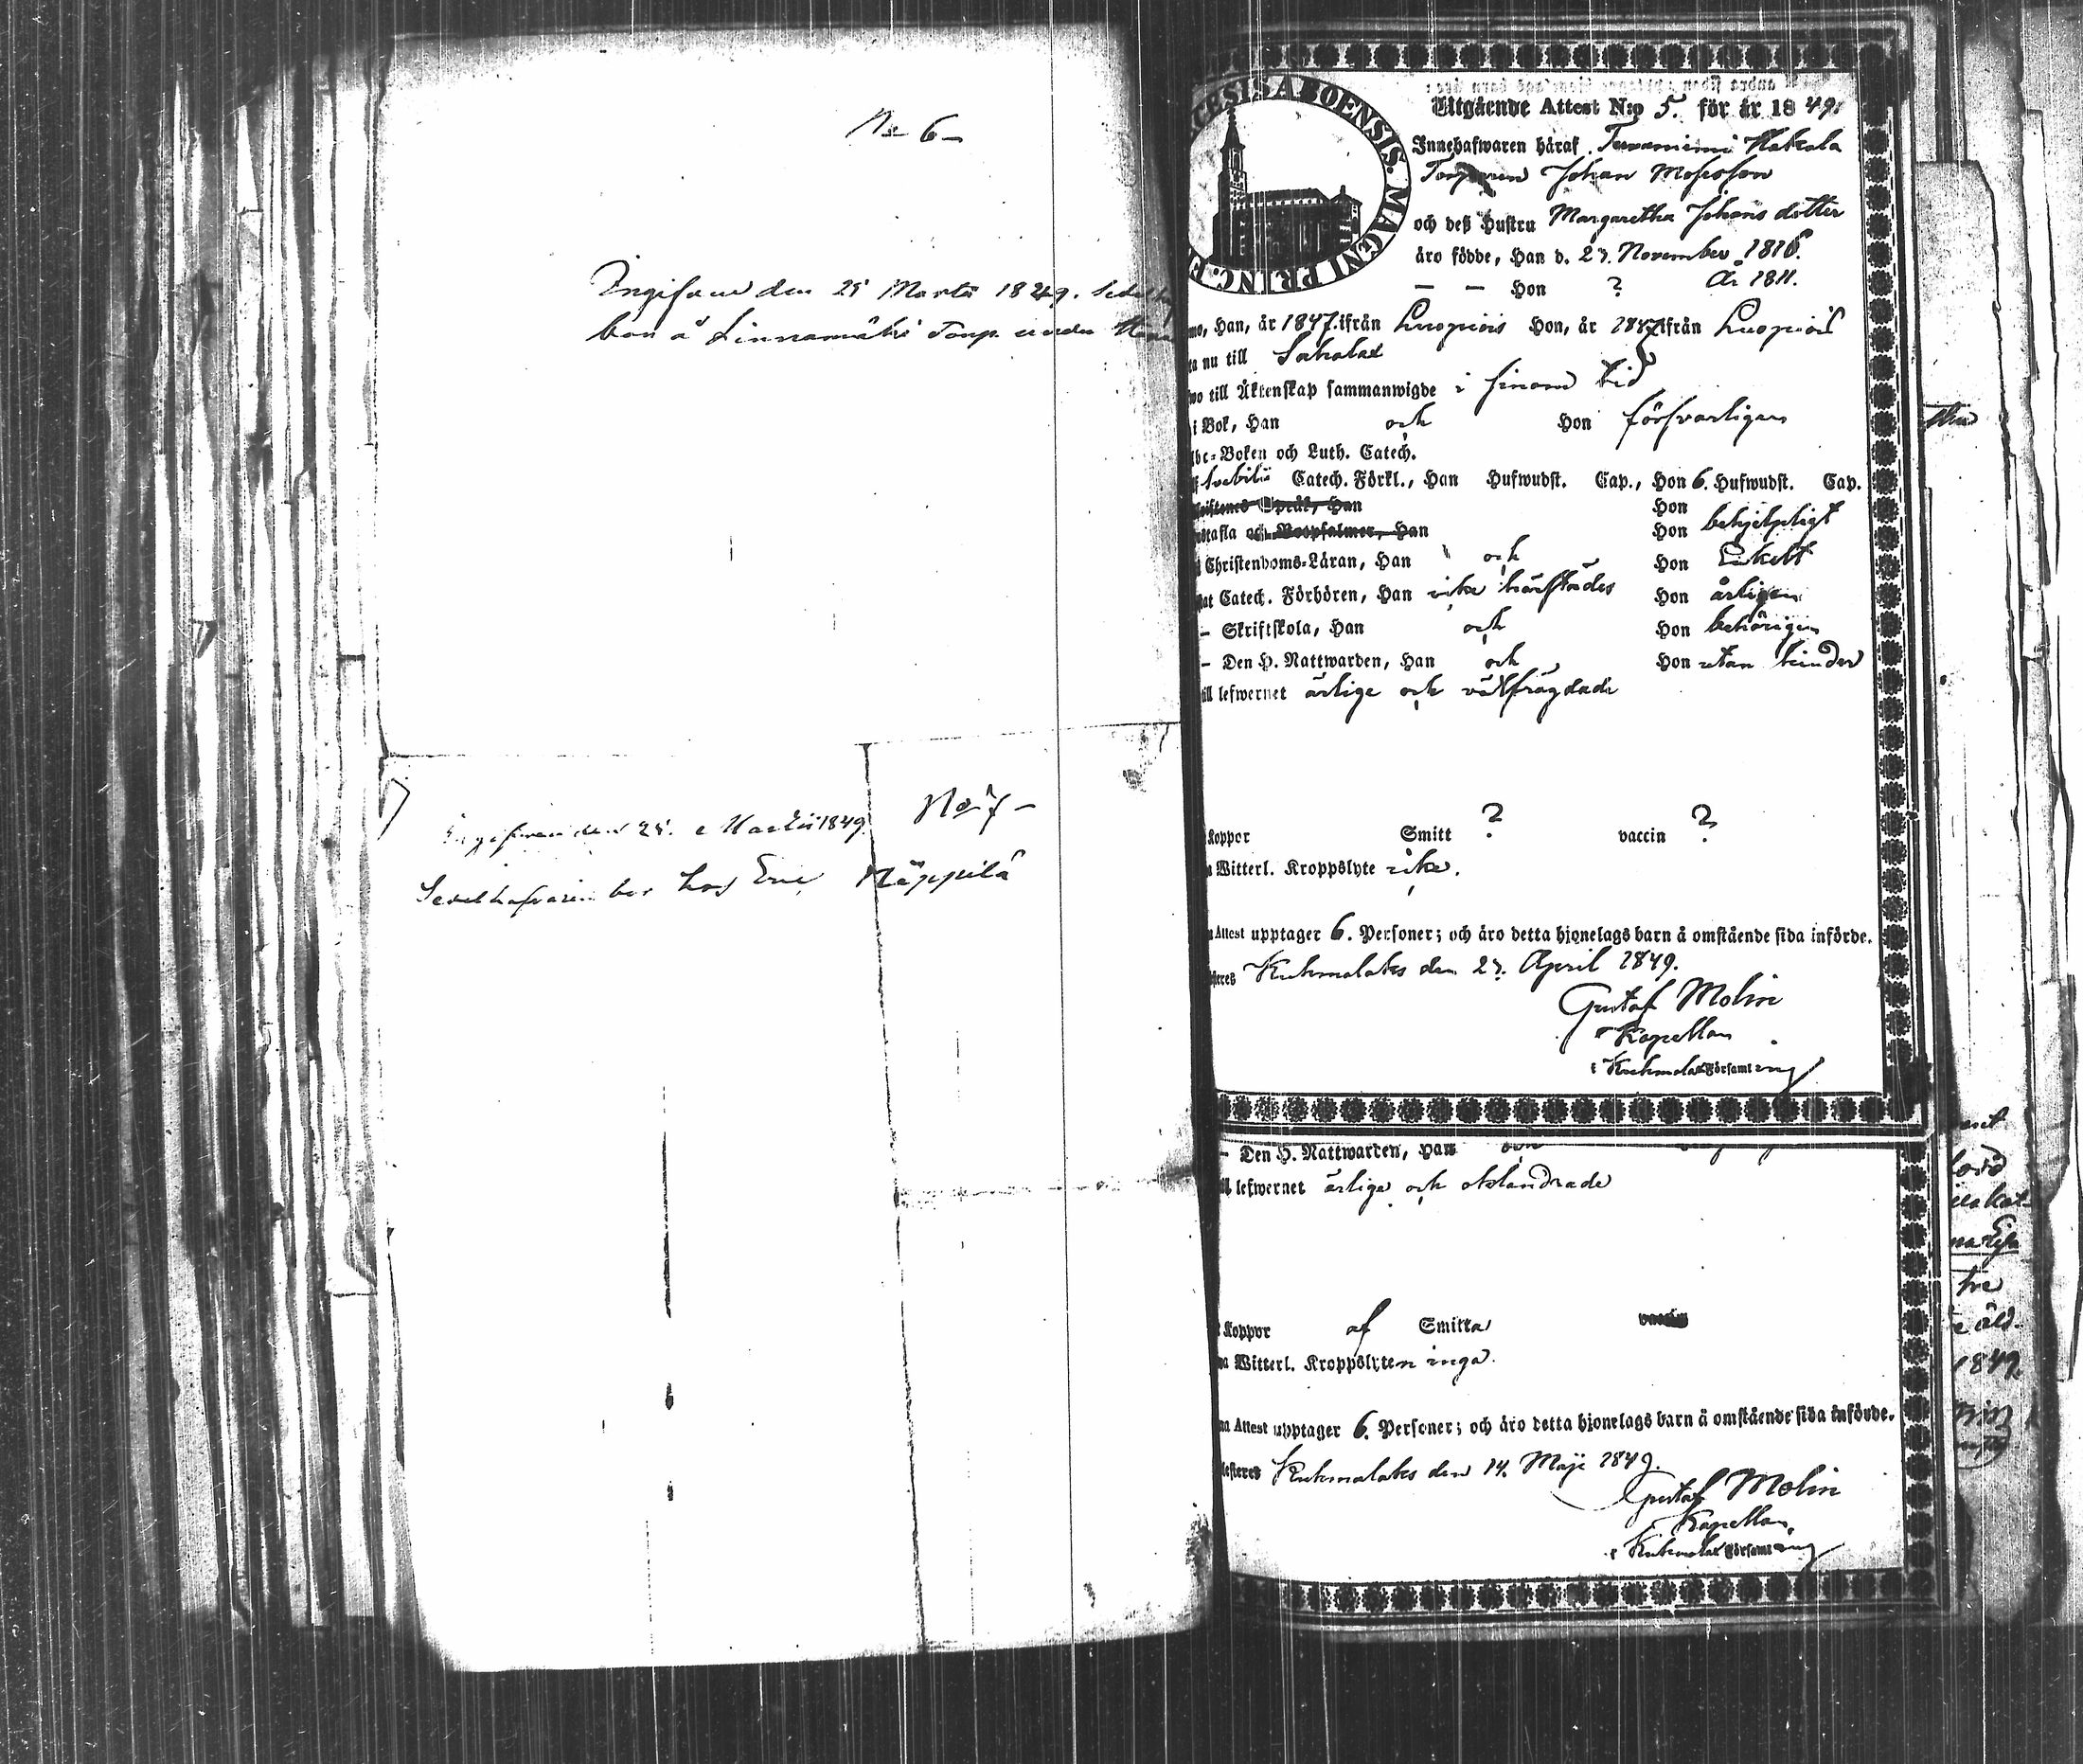 No 6
Ingifven den 25 Martii 1849.
No 7
Ingifven den 25. Martii 1849
Sedelhafvaren bor hos Näppilä
CESIS ABOENSIS. MAGNI PRINC. F
Utgående Attest N:o 5. för år 1849.
Innehafwaren häraf Hakala
Torparen Johan
och deß Hustru Margaretha Johans dotter
äro födde, Han d. 23. November 1816.
— — Hon ? År 1811.
Han, år 1847. ifrån Luopiois Hon, år 1847 ifrån Luopiois
nu till Sahalax
till Äktenskap sammanwigde i sinom tid
i Bok, Han och Hon försvarligen
Boken och Luth. Catech.
Svebilii Catech. Förkl., Han Hufwudst. Cap., Hon 6. Hufwudst. Cap.
Språk, Han Hon
tafla och Han Hon behjelpligt
Christendoms-Läran, Han och Hon Enkelt
Catech. Förhören, Han icke härstädes Hon årligen
– Skriftskola, Han och Hon behörigen
– Den H. Nattwarden, Han och Hon utan hinder
lefwernet ärlige och välfrägdade
Koppor Smitt ? vaccin ?
Witterl. Kroppslyte icke.
Attest upptager 6. Personer; och äro detta hjonelags barn å omstående sida införde.
Kuhmalaks den 23. April 1849.
Gustaf Molin
Kapellan
i Kuhmalax Församling
– Den H. Nattwarden, Han och
lefwernet ärlige och oklandrade
Koppor af Smitta
Witterl. Kroppslyten inga.
Attest upptager 6. Personer; och äro detta hjonelags barn å omstående sida införde.
Kuhmalaks den 14. Maji 1849.
Gustaf Molin
Kapellan
i Kuhmalax Församling
tre
1849.